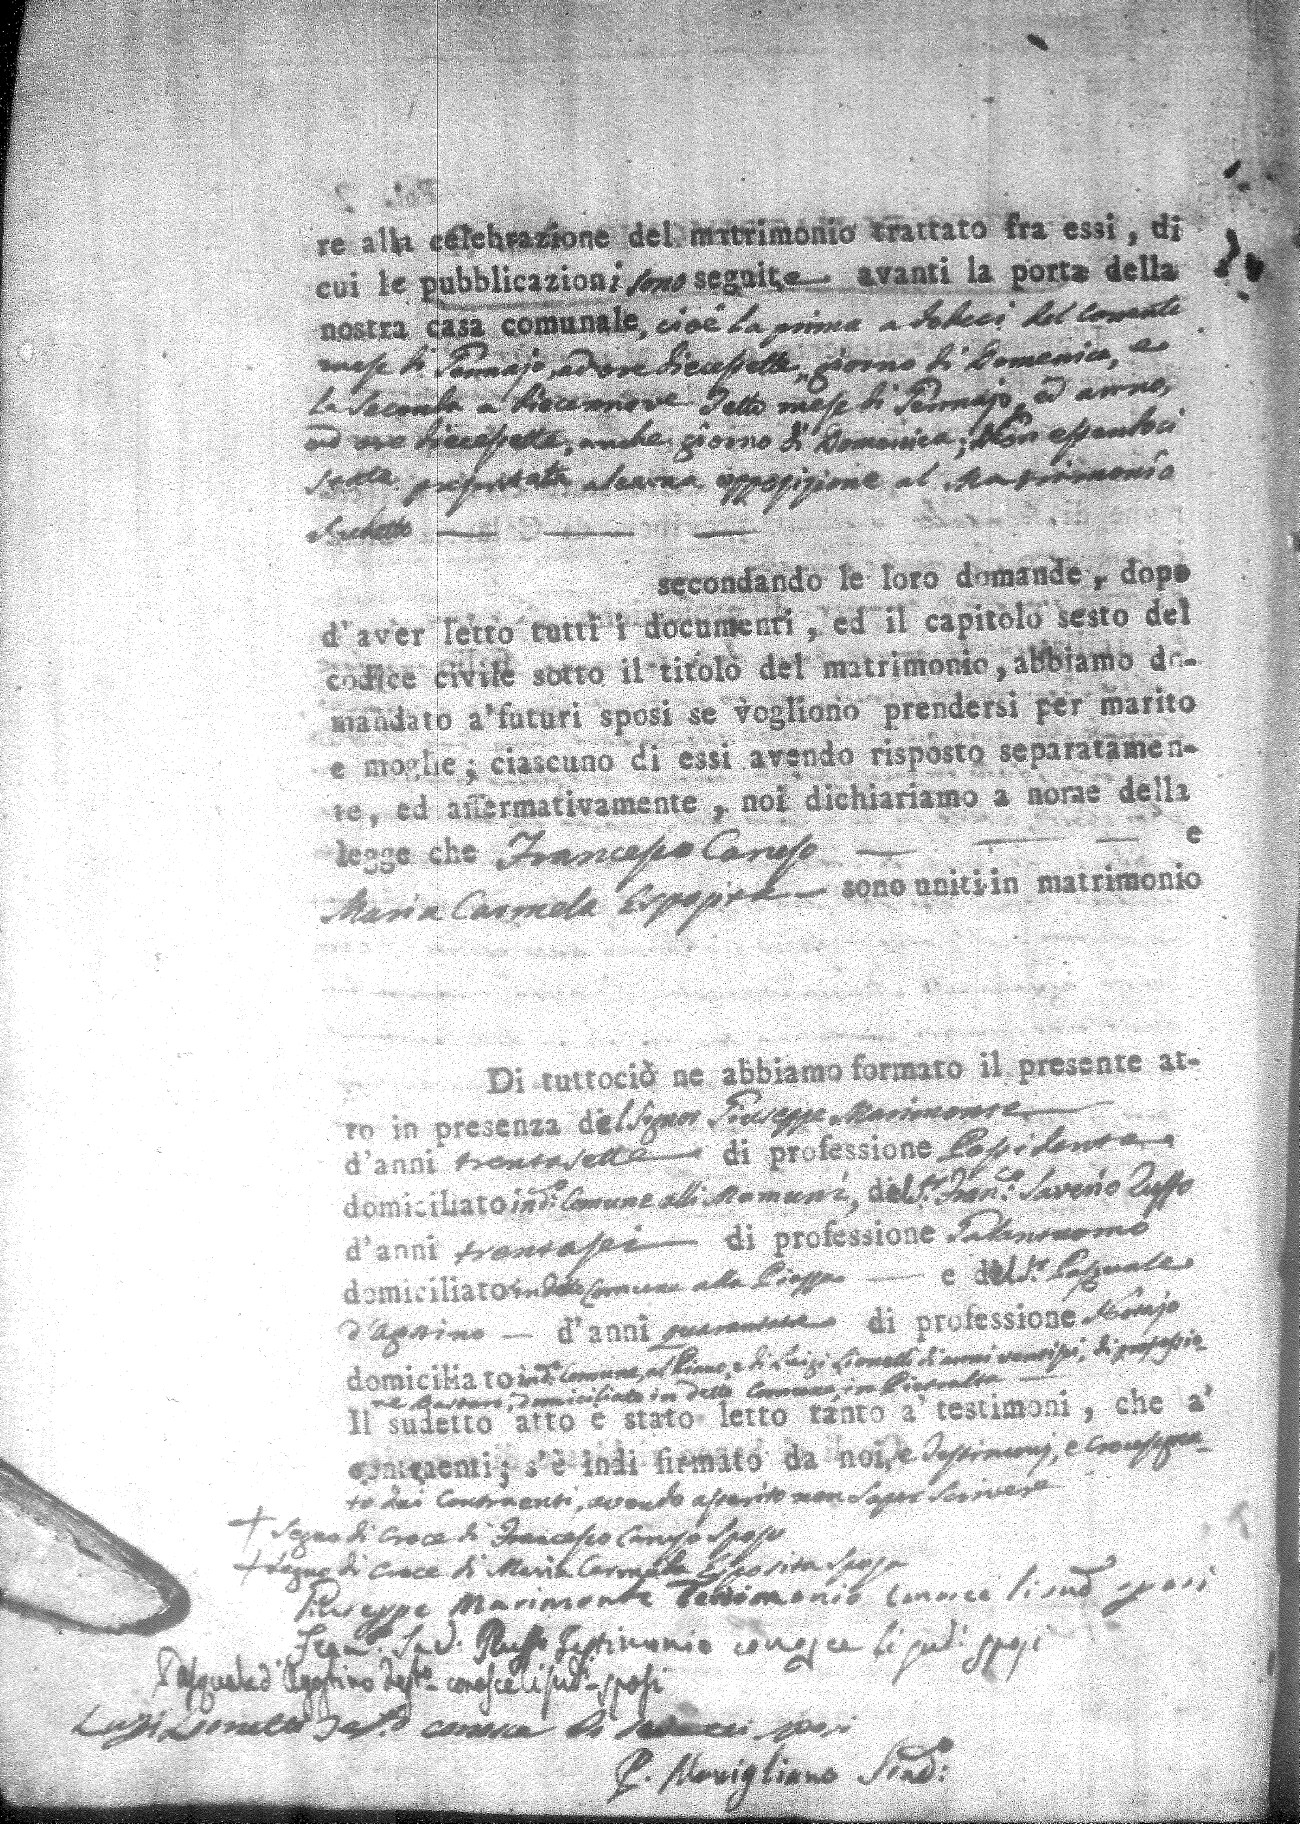 re alla celebrazione del matrimonio trattato fra essi, di
cui le pubblicazioni sono seguite avanti la porta della
nostra casa comunale, cioè la prima a dodeci del corrente
mese di Gennajo, ad ore diecesette, giorno di Domenica, e
la seconda a diecennove detto mese di Gennajo, ed anno,
ad ore diecesette, anche giorno di Domenica; Non essendoci
stata presentata alcuna opposizione al Matrimonio
sudetto
secondando le loro domande, dopo
d'aver letto tutti i documenti, ed il capitolo sesto del
codice civile sotto il titolo del matrimonio, abbiamo do-
mandato a'futuri sposi se vogliono prendersi per marito
e moglie; ciascuno di essi avendo risposto separatamen-
te, ed affermativamente, noi dichiariamo a norae della
legge che Francesco Caruso e
Maria Carmela Esposita sono uniti in matrimonio
Di tuttociò ne abbiamo formato il presente at-
to in presenza del Signor Giuseppe Marimonte
d'anni trentasette di professione Possidente
domiciliato in do: Comune alli Mamuni, del Sr. Franco. Saverio Russo
d'anni trentasei di professione Galantuomo
domiciliato in detto Comune alla Piazza e del Sr. Pasquale
d'Agostino d'anni quaranta di professione Notajo
domiciliato in do: Comune, al Piano, e di Luigi Lionetti d'anni ventisei, di professio-
ne domiciliato in detto Comune, in
Il sudetto atto è stato letto tanto a' testimoni, che a'
contraenti; s'è indi firmato da noi, e Testimonj, e crocesegna-
to dai Contraenti, avendo asserito non saper scrivere
+ Segno di Croce di Francesco Caruso sposo
+ Segno di Croce di Maria Carmela Esposita sposa
Giuseppe Marimonte Testimonio conosce li sudi. sposi
Franco. Sav. Russo Testimonio conosce li sudi. sposi
Pasquale d'Agostino Testo. conosce li sudi. sposi
Luigi Lionetti Testo. conosce li sposi
P. Novigliano Sindo: